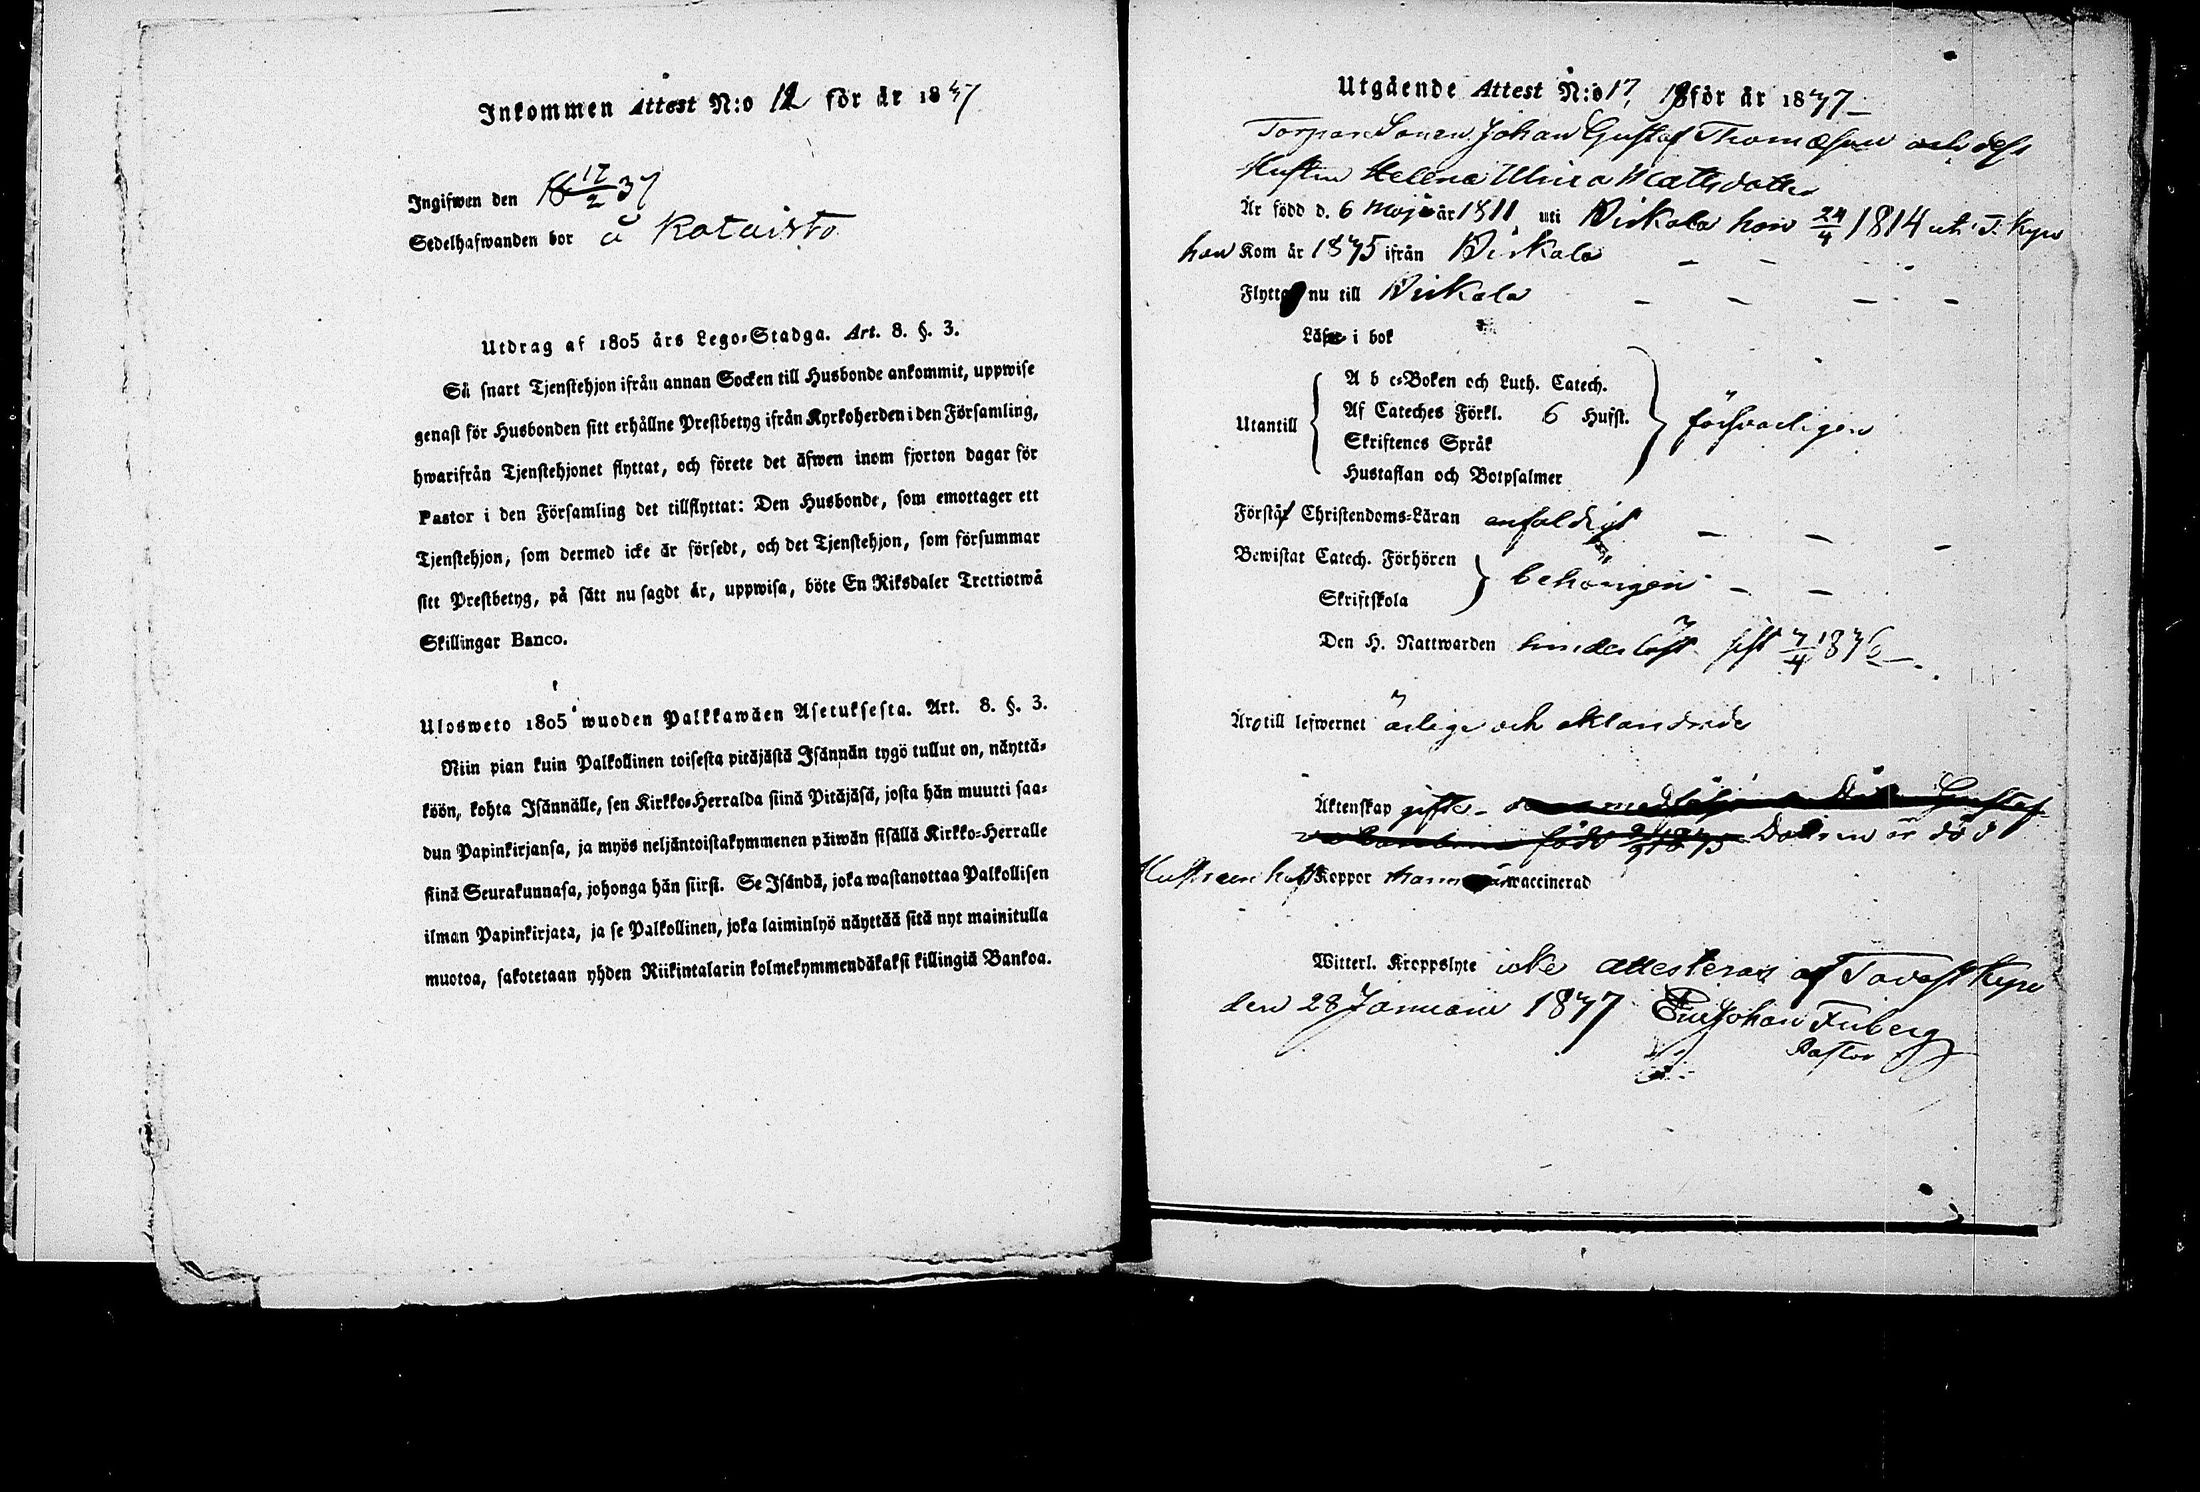 Inkommen Attest N:o 12 för år 1837
Ingifwen den 16 17/2 37
Sedelhafwanden bor å Kataisto
Utdrag af 1805 års Lego-Stadga. Art. 8. §. 3.
Så snart Tjenstehjon ifrån annan Socken till Husbonde ankommit, uppwise
genast för Husbonden sitt erhållne Prestbetyg ifrån Kyrkoherden i den Församling,
hwarifrån Tjenstehjonet flyttat, och förete det äfwen inom fjorton dagar för
Pastor i den Församling det tillflyttat: Den Husbonde, som emottager ett
Tjenstehjon, som dermed icke är försedt, och det Tjenstehjon, som försummar
sitt Prestbetyg, på sätt nu sagdt är, uppwisa, böte En Riksdaler Trettiotwå
Skillingar Banco.
Ulosweto 1805 wuoden Palkkawäen Asetuksesta. Art. 8. §. 3.
Niin pian kuin Palkollinen toisesta pitäjästä Isännän tygö tullut on, näyttä-
köön, kohta Isännälle, sen Kirkko-Herralda siinä Pitäjäsä, josta hän muutti saa-
dun Papinkirjansa, ja myös neljäntoistakymmenen päiwän sisällä Kirkko-Herralle
siinä Seurakunnasa, johonga hän siirsi. Se Isändä, joka wastanottaa Palkollisen
ilman Papinkirjata, ja se Palkollinen, joka laiminlyö näyttää sitä nyt mainitulla
muotoa, sakotetaan yhden Riikintalarin kolmekymmendäkaksi killingiä Bankoa.
Utgående Attest N:o 17, 18 för år 1837
Torpare Sonen Johan Gustaf Thomæson och dess
Hustru Helena Ulrica Mattsdotter
Är född d. 6 Maji år 1811 uti Birkala hon 24/4 1814 uti T. Kyro
han Kom år 1835 ifrån Birkala
Flytta nu till Birkala
Läsa i bok
Utantill
A b c-Boken och Luth. Catech.
Af Cateches Förkl. 6 Hufst.
Skriftenes Språk
Hustaflan och Botpsalmer
försvarligen
Förstå Christendoms-Läran enfaldigt
Bewistat Catech. Förhören
Skriftskola
behörigen
Den H. Nattwarden sist 3/4 1836
Äro till lefwernet ärlige och oklandrade
Äktenskap gifte
Dottren är död
Hustruen haft Koppor mannen är waccinerad
Witterl. Kroppslyte icke attesteras af Tavastkyro
den 28 Januarii 1837 Johan Friberg
Pastor